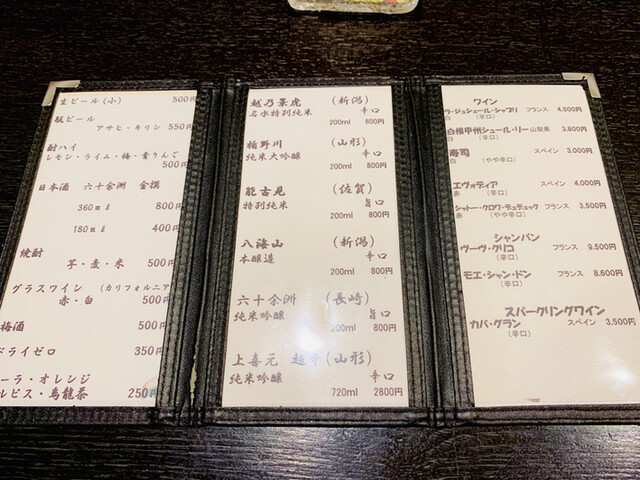 生ビール(小) 500円
瓶ビール
アサヒ・キリン 550円
酎ハイ
レモン・ライム・梅・青りんご
500円
日本酒 六十余洲 金撰
360mℓ 800円
180mℓ 400円
焼酎
芋・麦・米 500円
グラスワイン (カリフォルニア
赤・白 500円
梅酒 500円
ドライゼロ 350円
ーラ・オレンジ
ルピス・烏龍茶 250円
越乃景虎 (新潟)
名水特別純米 辛口
200ml 800円
楯野川 (山形)
純米大吟醸 辛口
200ml 800円
能古見 (佐賀)
特別純米 旨口
200ml 800円
八海山 (新潟)
本醸造 辛口
200ml 800円
六十余洲 (長崎)
純米吟醸 旨口
200ml 800円
上喜元 (山形)
純米吟醸 辛口
720ml 2800円
ワイン
ラ・ジュシェール・シャブリ フランス 4,500円
白 (辛口)
白根甲州シュール・リー 山梨県 3,800円
白 (辛口)
寿司 スペイン 3,000円
白 (やや辛口)
エヴォディア スペイン 4,000円
赤 (辛口)
シャトー・クロワ・デュデュック フランス 3,500円
赤 (やや辛口)
シャンパン
ヴーヴ・クリコ フランス 9,500円
(辛口)
モエ・シャン・ドン フランス 8,600円
(辛口)
スパークリングワイン
カバ・グラン スペイン 3,500円
(辛口)